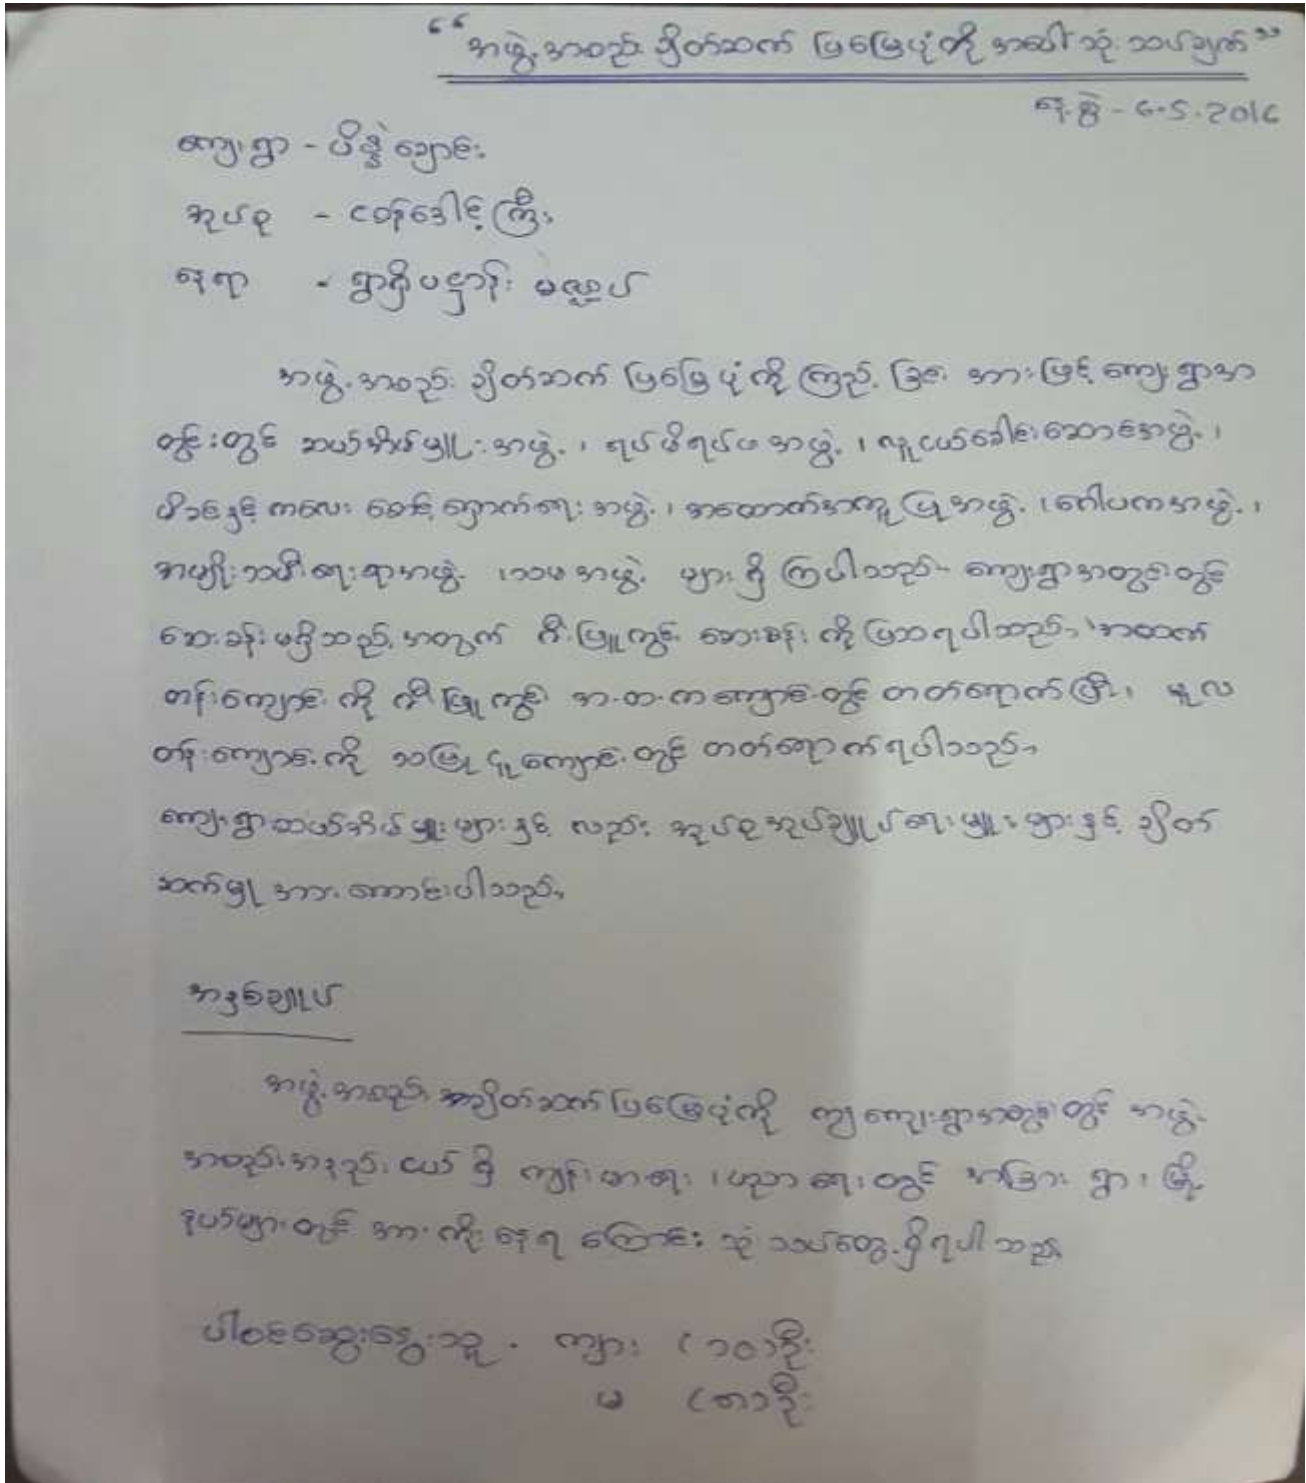 “အဖွဲ့အစည်း ချိတ်ဆက် ပြမြေပုံ ကို အပေါ် သုံးသပ်ချက်”
နေ့စွဲ - ၆.၅.2016
ကျေးရွာ - ပိန္နဲချောင်း
အုပ်စု - ငဝန်ဒေါင့်ကြီး
နေရာ - ရွာရှိပဋ္ဌာန်း မဏ္ဍပ်
အဖွဲ့အစည်း ချိတ်ဆက် ပြမြေပုံ ကို ကြည့်ခြင်း အားဖြင့် ကျေးရွာအ
တွင်းတွင် ဆယ်အိမ်မှူးအဖွဲ့၊ ရပ်မိရပ်ဖ အဖွဲ့၊ လူငယ်ခေါင်းဆောင်အဖွဲ့၊
မိခင်နှင့် ကလေး စောင့်ရှောက်ရေး အဖွဲ့၊ အထောက်အကူပြုအဖွဲ့၊ ဂေါပကအဖွဲ့၊
အမျိုးသမီးရေးရာအဖွဲ့၊ သာမအဖွဲ့ များ ရှိ ကြပါသည်။ ကျေးရွာအတွင်းတွင်
ဆေးခန်းမရှိသည့်အတွက် ဂိံးပြူကွင်း ဆေးခန်း ကို ပြသရပါသည်။ အထက်
တန်းကျောင်း ကို ဂိံးပြူကွင်း အ.ထ.ကကျောင်းတွင် တတ်ရောက်ပြီး၊ မူလ
တန်းကျောင်းကို သပြုငူကျောင်းတွင် တတ်ရောက်ရပါသည်။
ကျေးရွာဆယ်အိမ်မှူးများနှင့် လည်း အုပ်စုအုပ်ချုပ်ရေးမှူးများနှင့် ချိတ်
ဆက်မှု အားကောင်းပါသည်။
အနှစ်ချုပ်
အဖွဲ့အစည်း ချိတ်ဆက်ပြမြေပုံကို ကျေးရွာအတွင်းတွင် အဖွဲ့
အစည်းအနည်းငယ် ရှိ ကျန်းမာရေး၊ ပညာရေးတွင် အခြား ရွာ၊ မြို့
နယ်များတွင် အားကိုးနေရ ကြောင်း သုံးသပ်တွေ့ရှိရပါသည်
ပါဝင်ဆွေးနွေးသူ - ကျား (၁၀)ဦး
မ (၈)ဦး